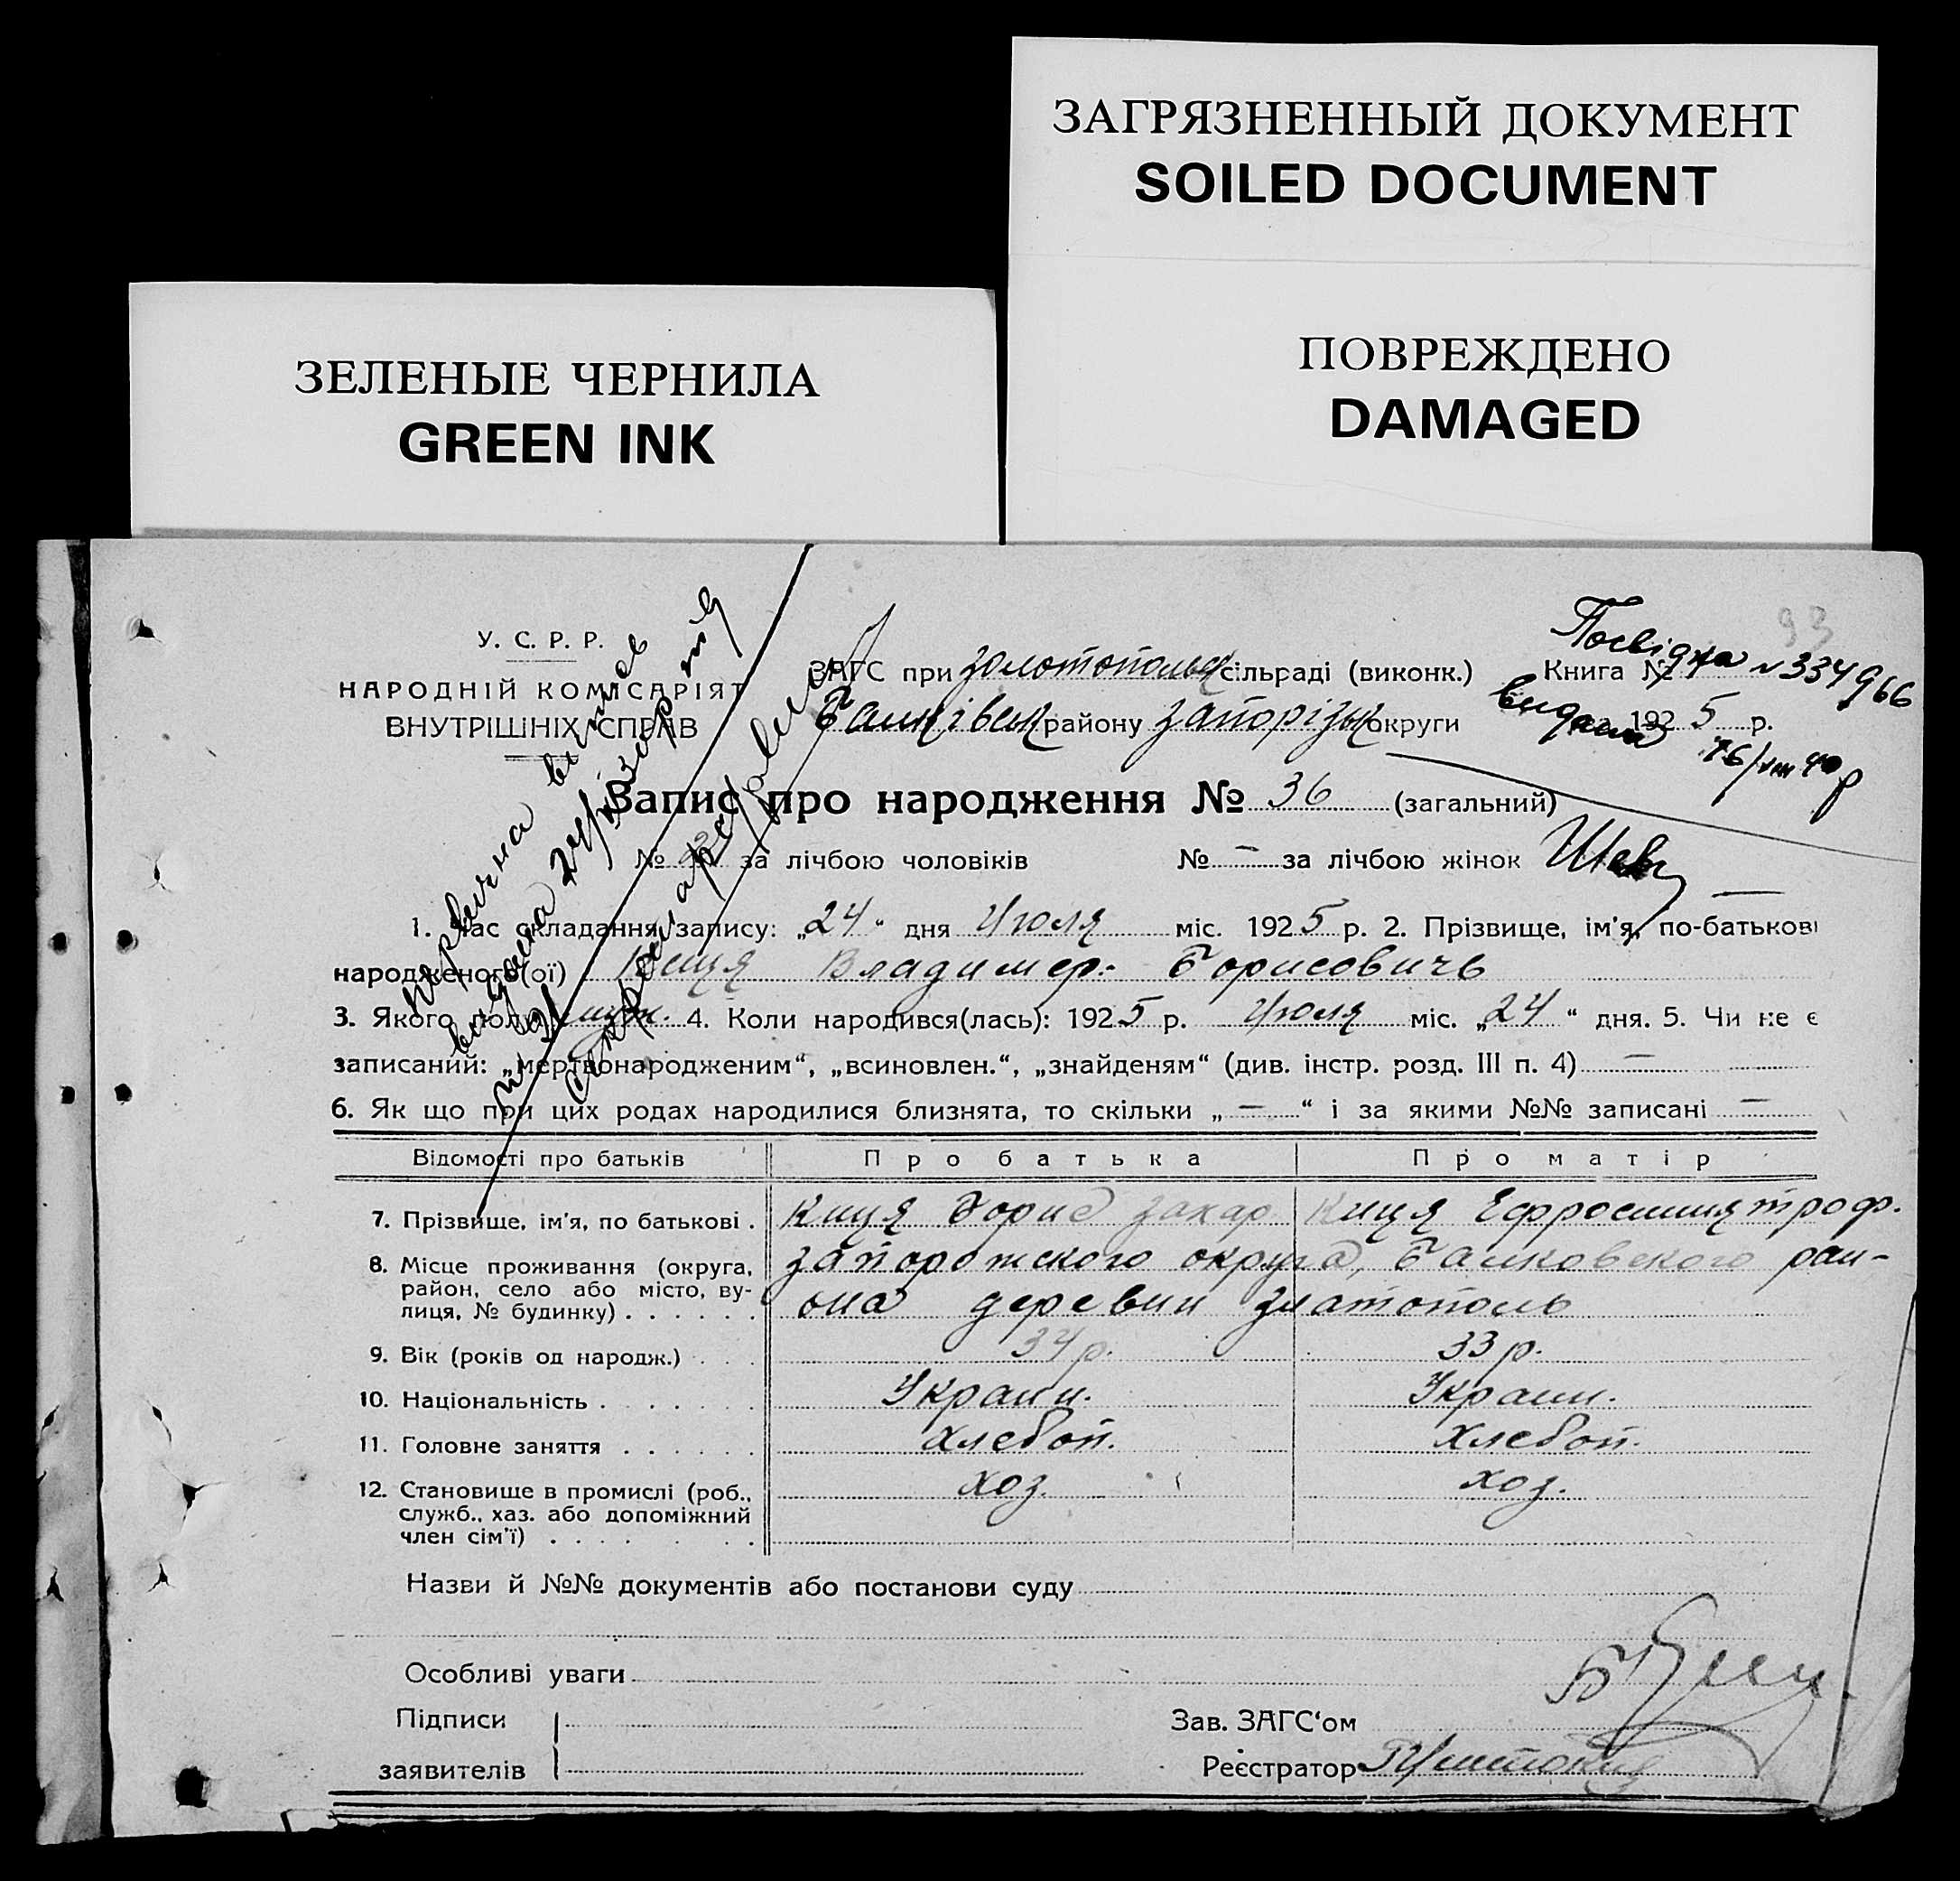 ЗАГРЯЗНЕННЫЙ ДОКУМЕНТ
SOILED DOCUMENT
ПОВРЕЖДЕНО
DAMAGED
ЗЕЛЕНЫЕ ЧЕРНИЛА
GREEN INK
93
У. С. Р. Р.
НАРОДНІЙ КОМІСАРІЯТ
ВНУТРІШНІХ СПРАВ
ЗАГС при золотопольск сільраді (виконк.) Книга №
району запорізьк округи за 1925 р.
Посвідка № 334966
видана
16/VIII 40 р
первична виписка
видана
Запис про народження № 36 (загальний)
№ за лічбою чоловіків № — за лічбою жінок
1. Час складання запису: „24“ дня Июля міс. 1925 р. 2. Прізвище, ім'я, по-батькові
народженого(ої) Киця Владимер Борисовичь
3. Якого полу муж. 4. Коли народився(лась): 1925 р. Июля міс. „24“ дня. 5. Чи не є
записаний: „мертвонародженим“, „всиновлен.“, „знайденям“ (див. інстр. розд. III п. 4) —
6. Як що при цих родах народилися близнята, то скільки „—“ і за якими №№ записані —
Відомості про батьків Про батька Про матір
7. Прізвище, ім'я, по батькові . Киця Борис Захар Киця Ефросиния троф.
8. Місце проживання (округа, район, село або місто, вулиця, № будинку) . . . . . . запорожского округа, Балковского раиона деревни златополь
9. Вік (років од народж.) . . . 34 р. 33 р.
10. Національність . . . . . . . Украин. Украин.
11. Головне заняття . . . . . . хлебоп. хлебоп.
12. Становище в промислі (роб., служб., хаз. або допоміжний член сім'ї) . . . . . . . хоз. хоз.
Назви й №№ документів або постанови суду
Особливі уваги
Підписи
заявителів
Зав. ЗАГС'ом
Реєстратор